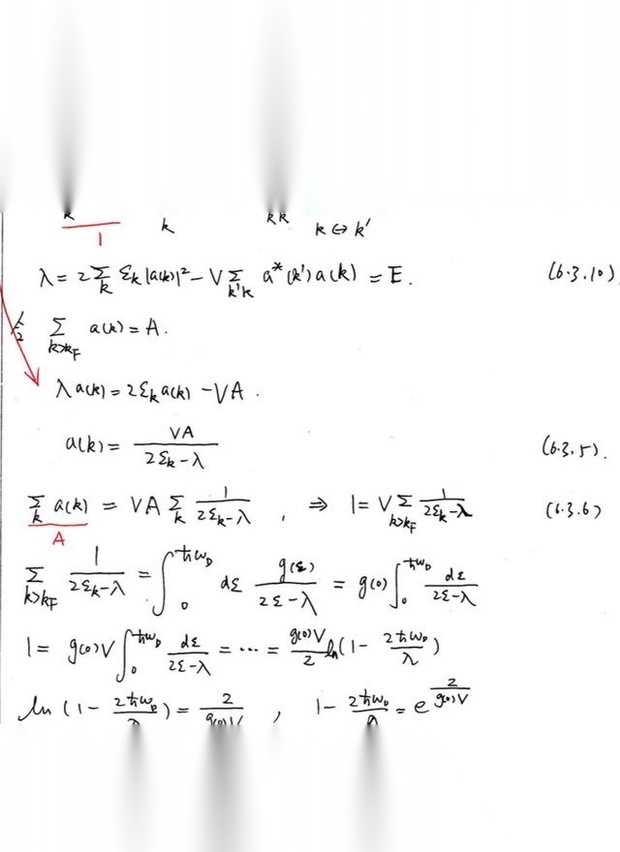 k k kk k↔k'
1
λ = 2Σ_k ε_k |a(k)|² − V Σ_{k'k} a*(k') a(k) = E. (6.3.10)
令 Σ_{k>k_F} a(k) = A.
λ a(k) = 2ε_k a(k) − VA.
a(k) = VA / (2ε_k − λ) (6.3.5).
Σ_k a(k) = VA Σ_k 1/(2ε_k − λ) , ⇒ 1 = V Σ_{k>k_F} 1/(2ε_k − λ) (6.3.6)
A
Σ_{k>k_F} 1/(2ε_k − λ) = ∫_0^{ħω_D} dε g(ε)/(2ε − λ) = g(0) ∫_0^{ħω_D} dε/(2ε − λ)
1 = g(0)V ∫_0^{ħω_D} dε/(2ε − λ) = ⋯ = g(0)V/2 ln(1 − 2ħω_D/λ)
ln(1 − 2ħω_D/λ) = 2/g(0)V , 1 − 2ħω_D/λ = e^{2/g(0)V}